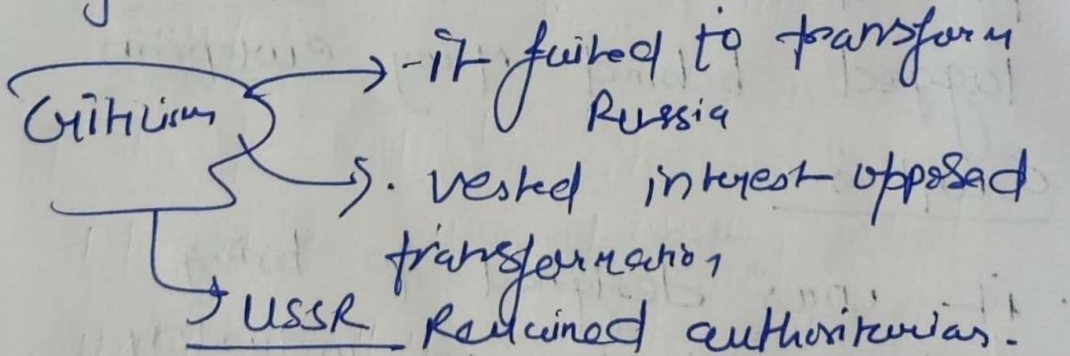 Criticism
- it failed to transform
Russia
. vested interest opposed
transformation
USSR Remained authoritarian.